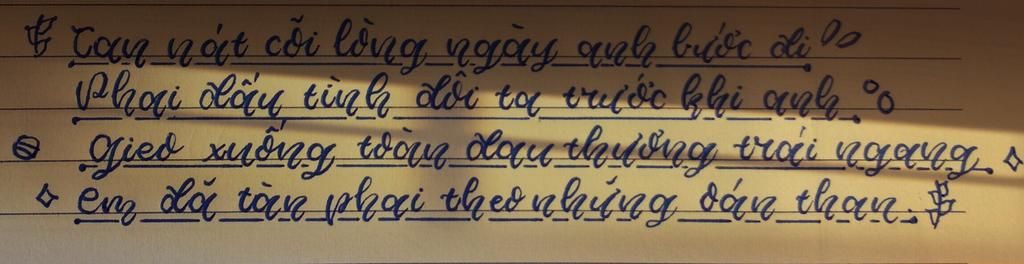 Tan nát cõi lòng ngày anh bước đi
Phai dấu tình đôi ta trước khi anh
gieo xuống toàn đau thương trái ngang
em đã tàn phai theo những oán than.